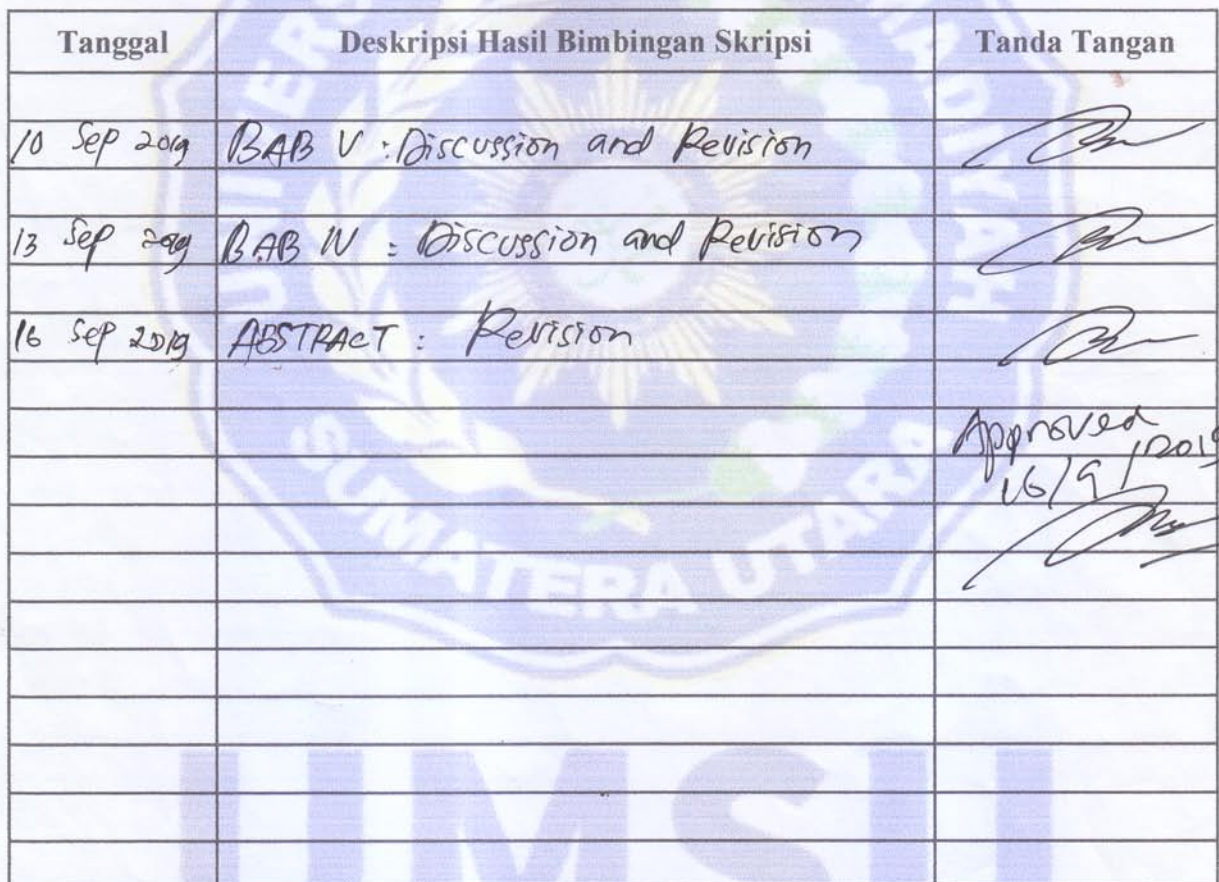 Tanggal Deskripsi Hasil Bimbingan Skripsi Tanda Tangan
10 Sep 2019 BAB V : Discussion and Revision
13 Sep 2019 BAB IV : Discussion and Revision
16 Sep 2019 ABSTRACT : Revision
Approved
16/9/2019
SUMATERA UTARA
UMSU